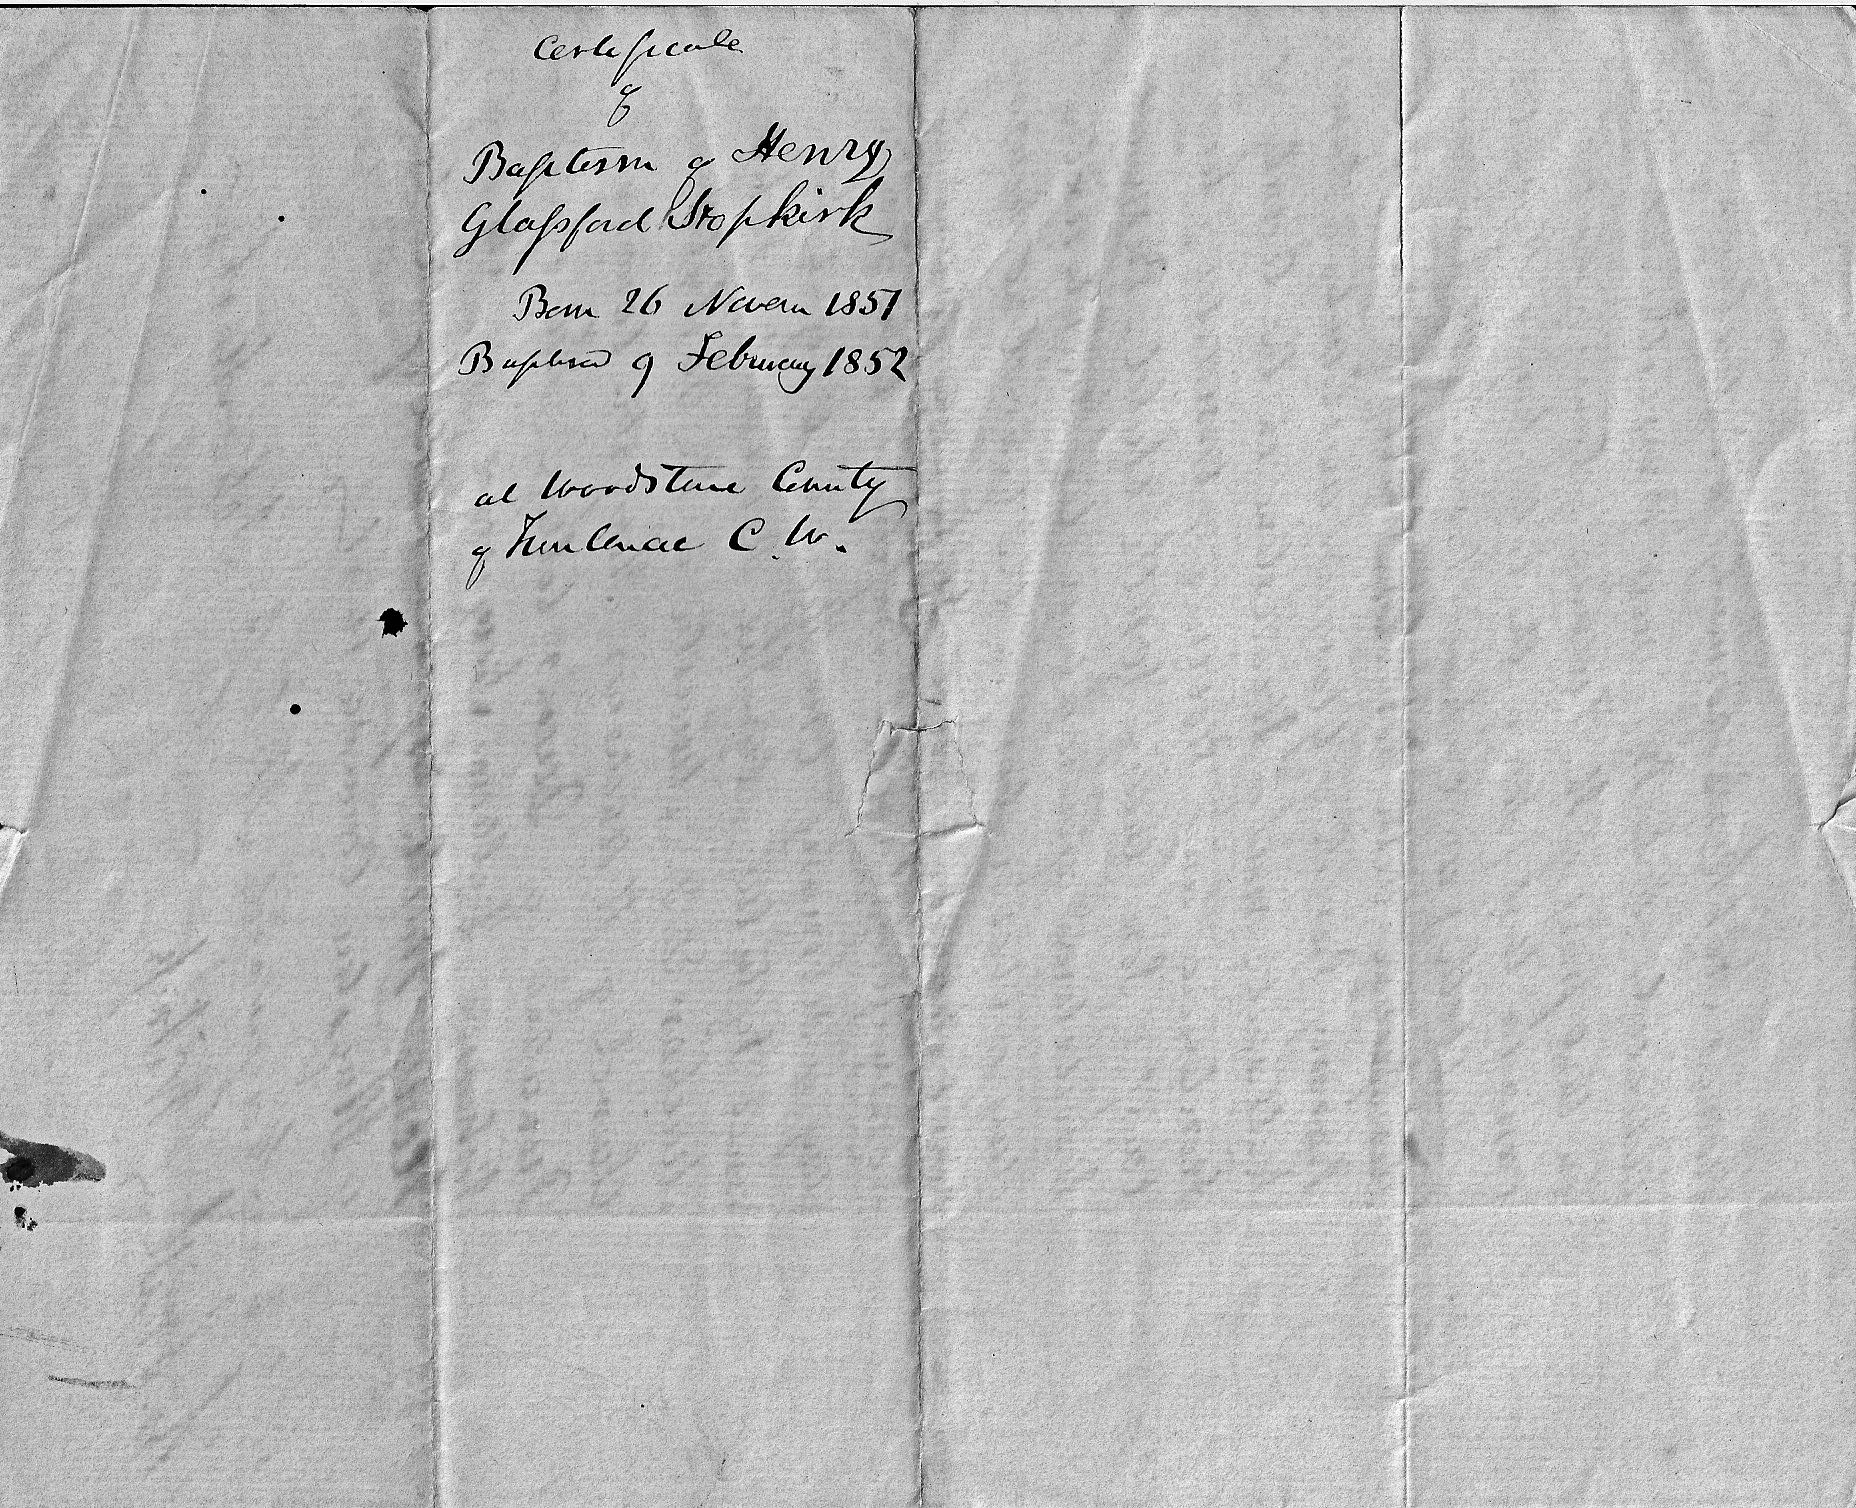 Certificate
of
Baptism of Henry
Glassford Stopkirk
Born 26 Novem 1851
Baptised 9 February 1852
at Woodstone County
of Frontenac C.W.